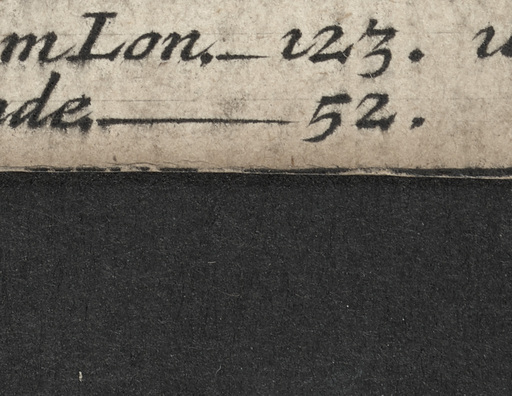 m Lon. — 123.
de. ——— 52.